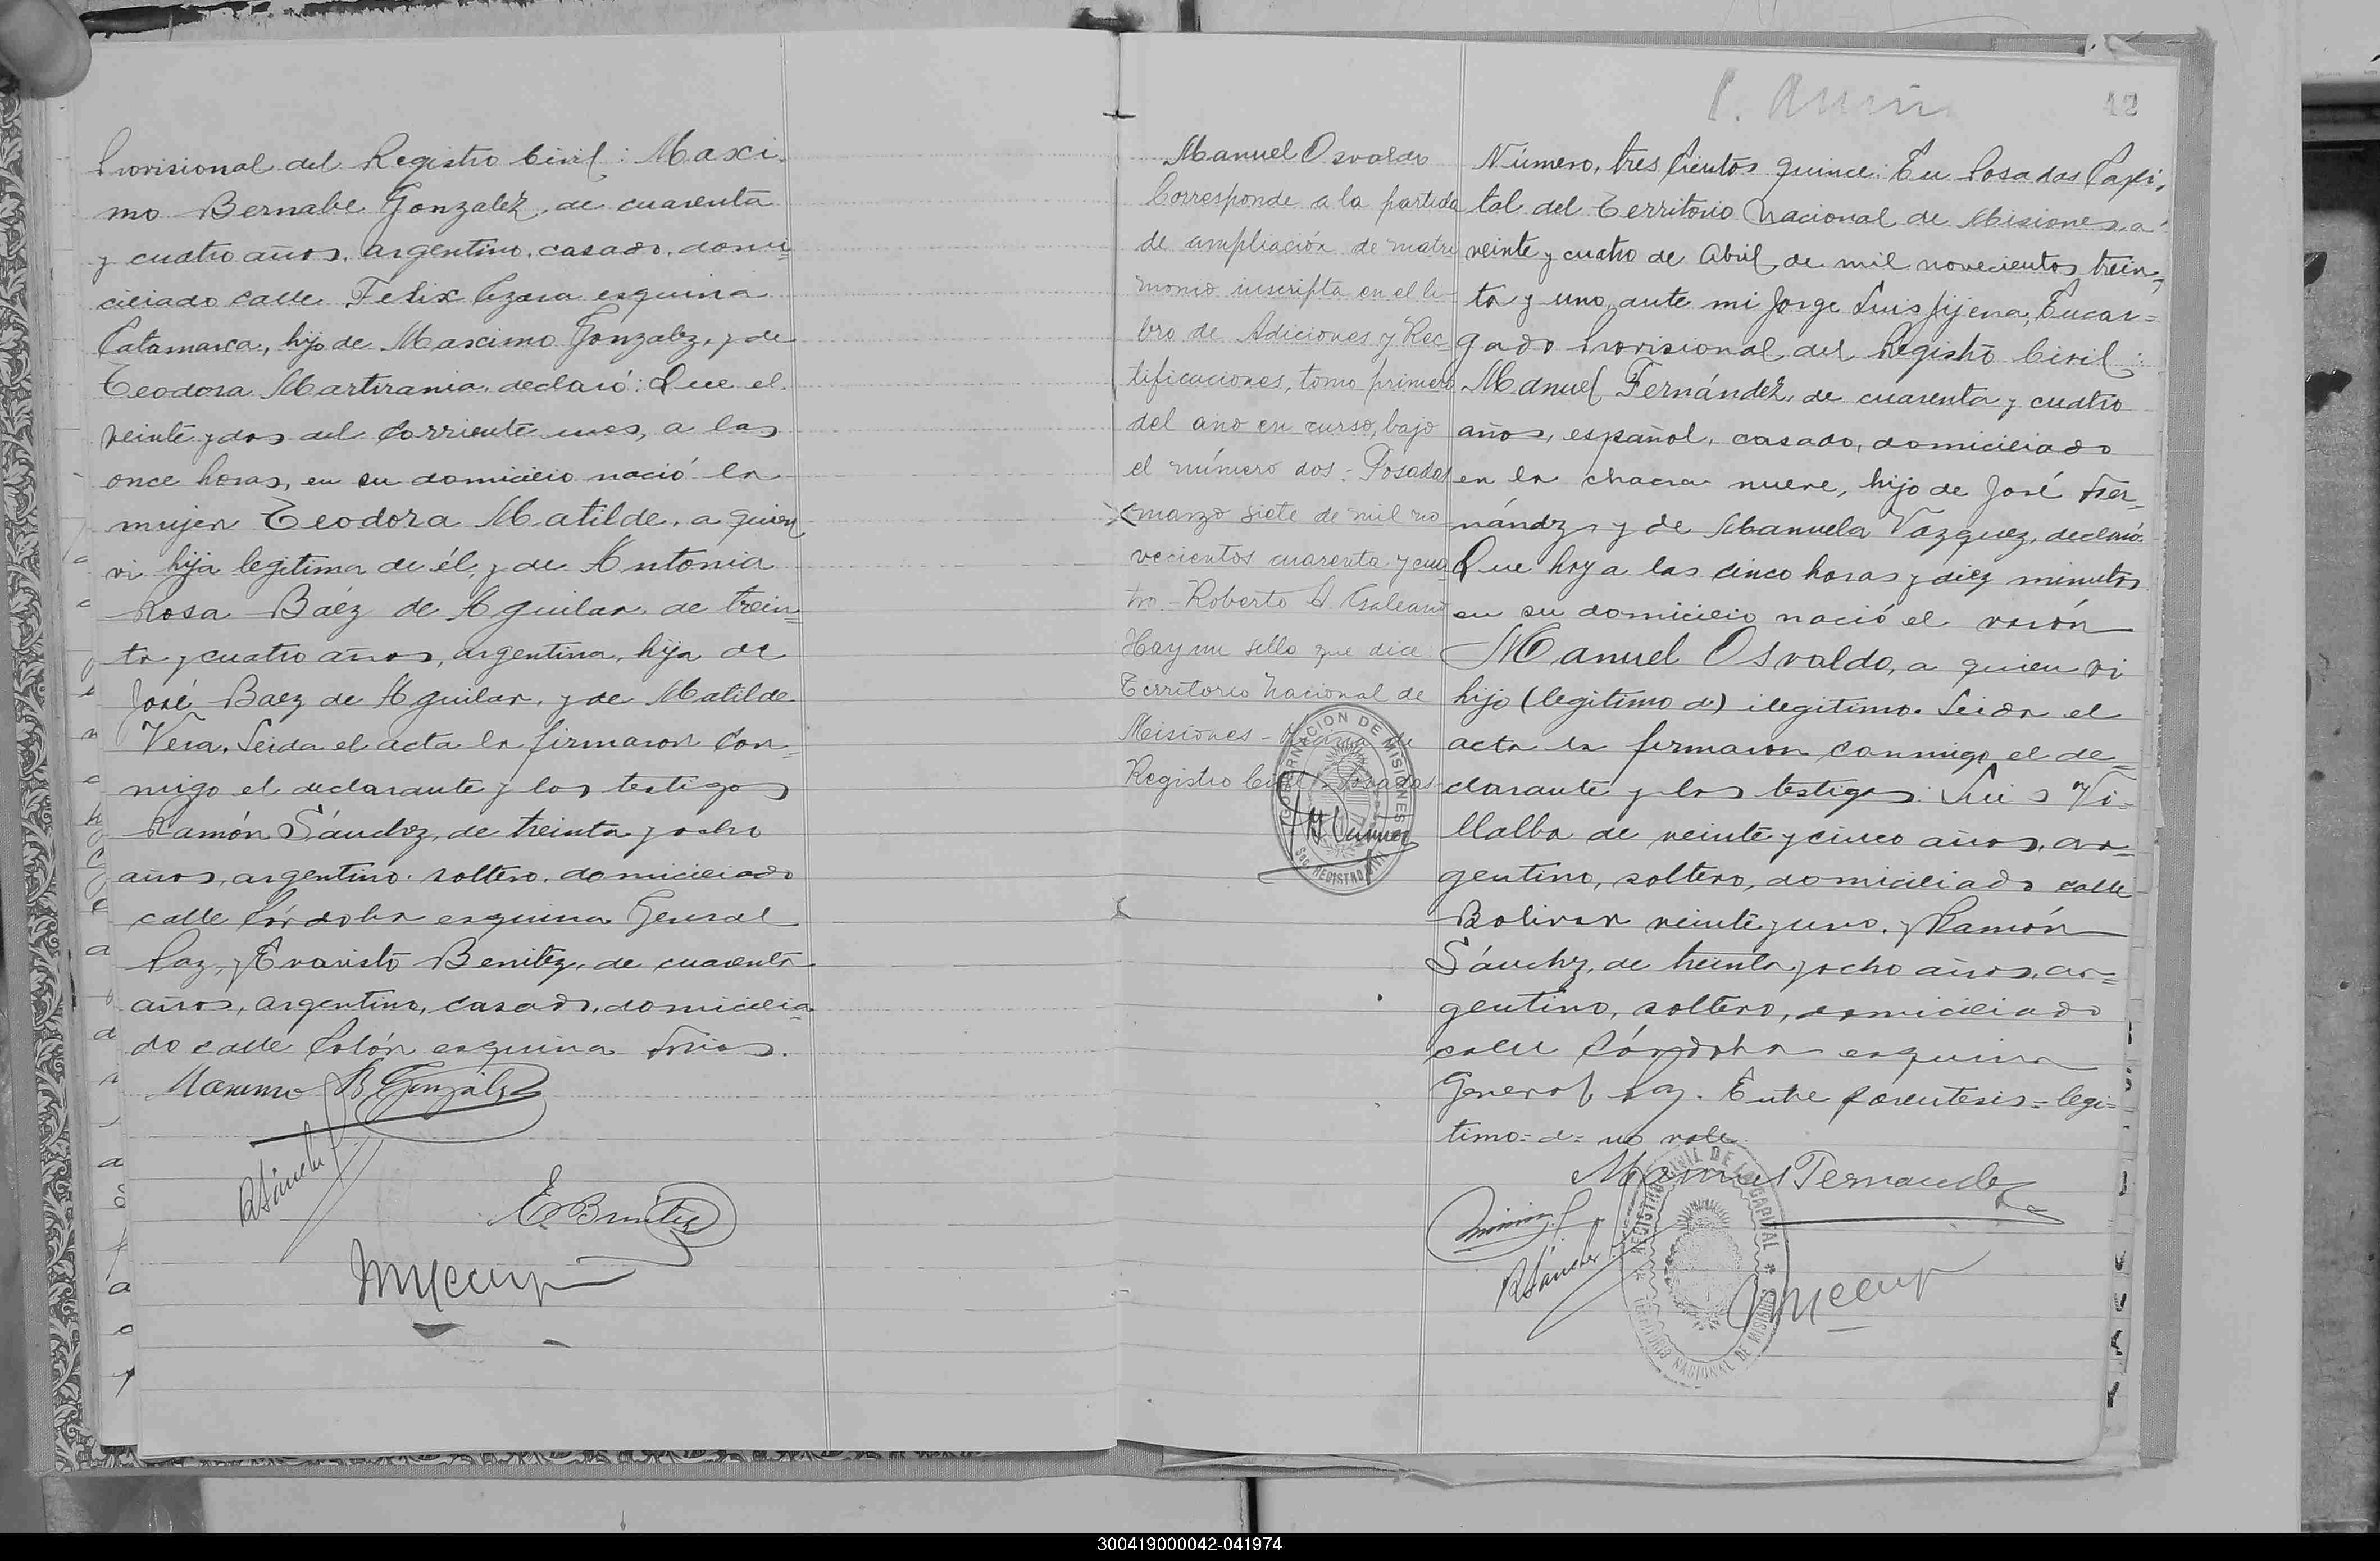 Provisional del Registro Civil: Maxi-
mo Bernabe Gonzalez, de cuarenta
y cuatro años, argentino, casado, domi=
ciliado calle Felix Azara esquina
Catamarca, hijo de Maximo Gonzalez, y de
Teodora Martirania, declaró: Que el
veinte y dos del corriente mes, a las
once horas, en su domicilio nació la
mujer Teodora Matilde, a quien
vi hija legitima de él, y de Antonia
Rosa Baéz de Aguilar, de trein=
ta y cuatro años, argentina, hija de
José Baez de Aguilar, y de Matilde
Vera. Leida el acta la firmaron con=
migo el declarante y los testigos
Ramón Sánchez, de treinta y ocho
años, argentino, soltero, domiciliado
calle Córdoba esquina General
Paz, y Evaristo Benitez, de cuarenta
años, argentino, casado, domicilia=
do calle Colón esquina Frias.
Maximo B. González
RSánchez
E. Benítez
12
Manuel Osvaldo
Corresponde a la partida
de ampliación de matri
monio inscripta en el li-
bro de Adiciones y Rec-
tificaciones, tomo primero
del año en curso, bajo
el número dos.- Posadas
marzo siete de mil no
vecientos cuarenta y cua
tro - Roberto A Galeano
Hay un sello que dice:
Territorio Nacional de
Misiones - Oficina de
Registro Civil - Posadas-
GOBERNACION DE MISIONES
REGISTRO CIVIL
Número, tres cientos quince: En Posadas Capi.
tal del Territorio Nacional de Misiones, a
veinte y cuatro de Abril de mil novecientos trein=
ta y uno, ante mi Jorge Luis Jijena, Encar=
gado Provisional del Registro Civil:
Manuel Fernández, de cuarenta y cuatro
años, español, casado, domiciliado
en la chacra nueve, hijo de José Fer=
nándz, y de Manuela Vazquez, declaró:
Que hoy a las cinco horas y diez minutos
en su domicilio nació el varón
Manuel Osvaldo, a quien vi
hijo (legitimo d) ilegitimo. Leida el
acta la firmaron conmigo el de=
clarante y los testigos: Luis Vi=
llalba de veinte y cinco años, ar=
gentino, soltero, domiciliado calle
Bolivar veinte y uno, y Ramón
Sánchz, de treinta y ocho años, ar=
gentino, soltero, domiciliado
calle Córdoba esquina
General Paz. Entre parentesis = legi=
timo = d = no vale.
Manuel Fernandez
RSánchez
REGISTRO CIVIL DE LA CAPITAL
TERRITORIO NACIONAL DE MISIONES
300419000042-041974